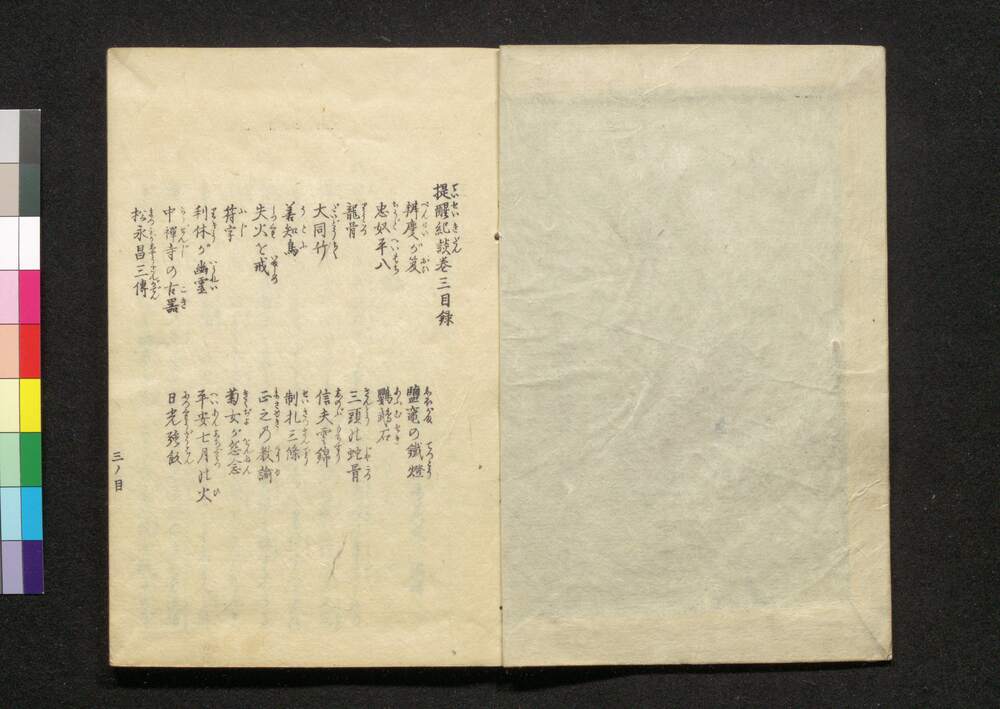 提醒紀談巻三目録
辨慶が笈
鹽竈の鐵燈
忠奴平八
鸚鵡石
龍骨
三頭の蛇骨
大同竹
信夫雲錦
善知鳥
制札三條
失火を戒
正之乃教諭
苻字
菊女が怨念
利休が幽霊
平安七月の火
中禪寺の古器
日光強飯
松永昌三傳
三ノ目